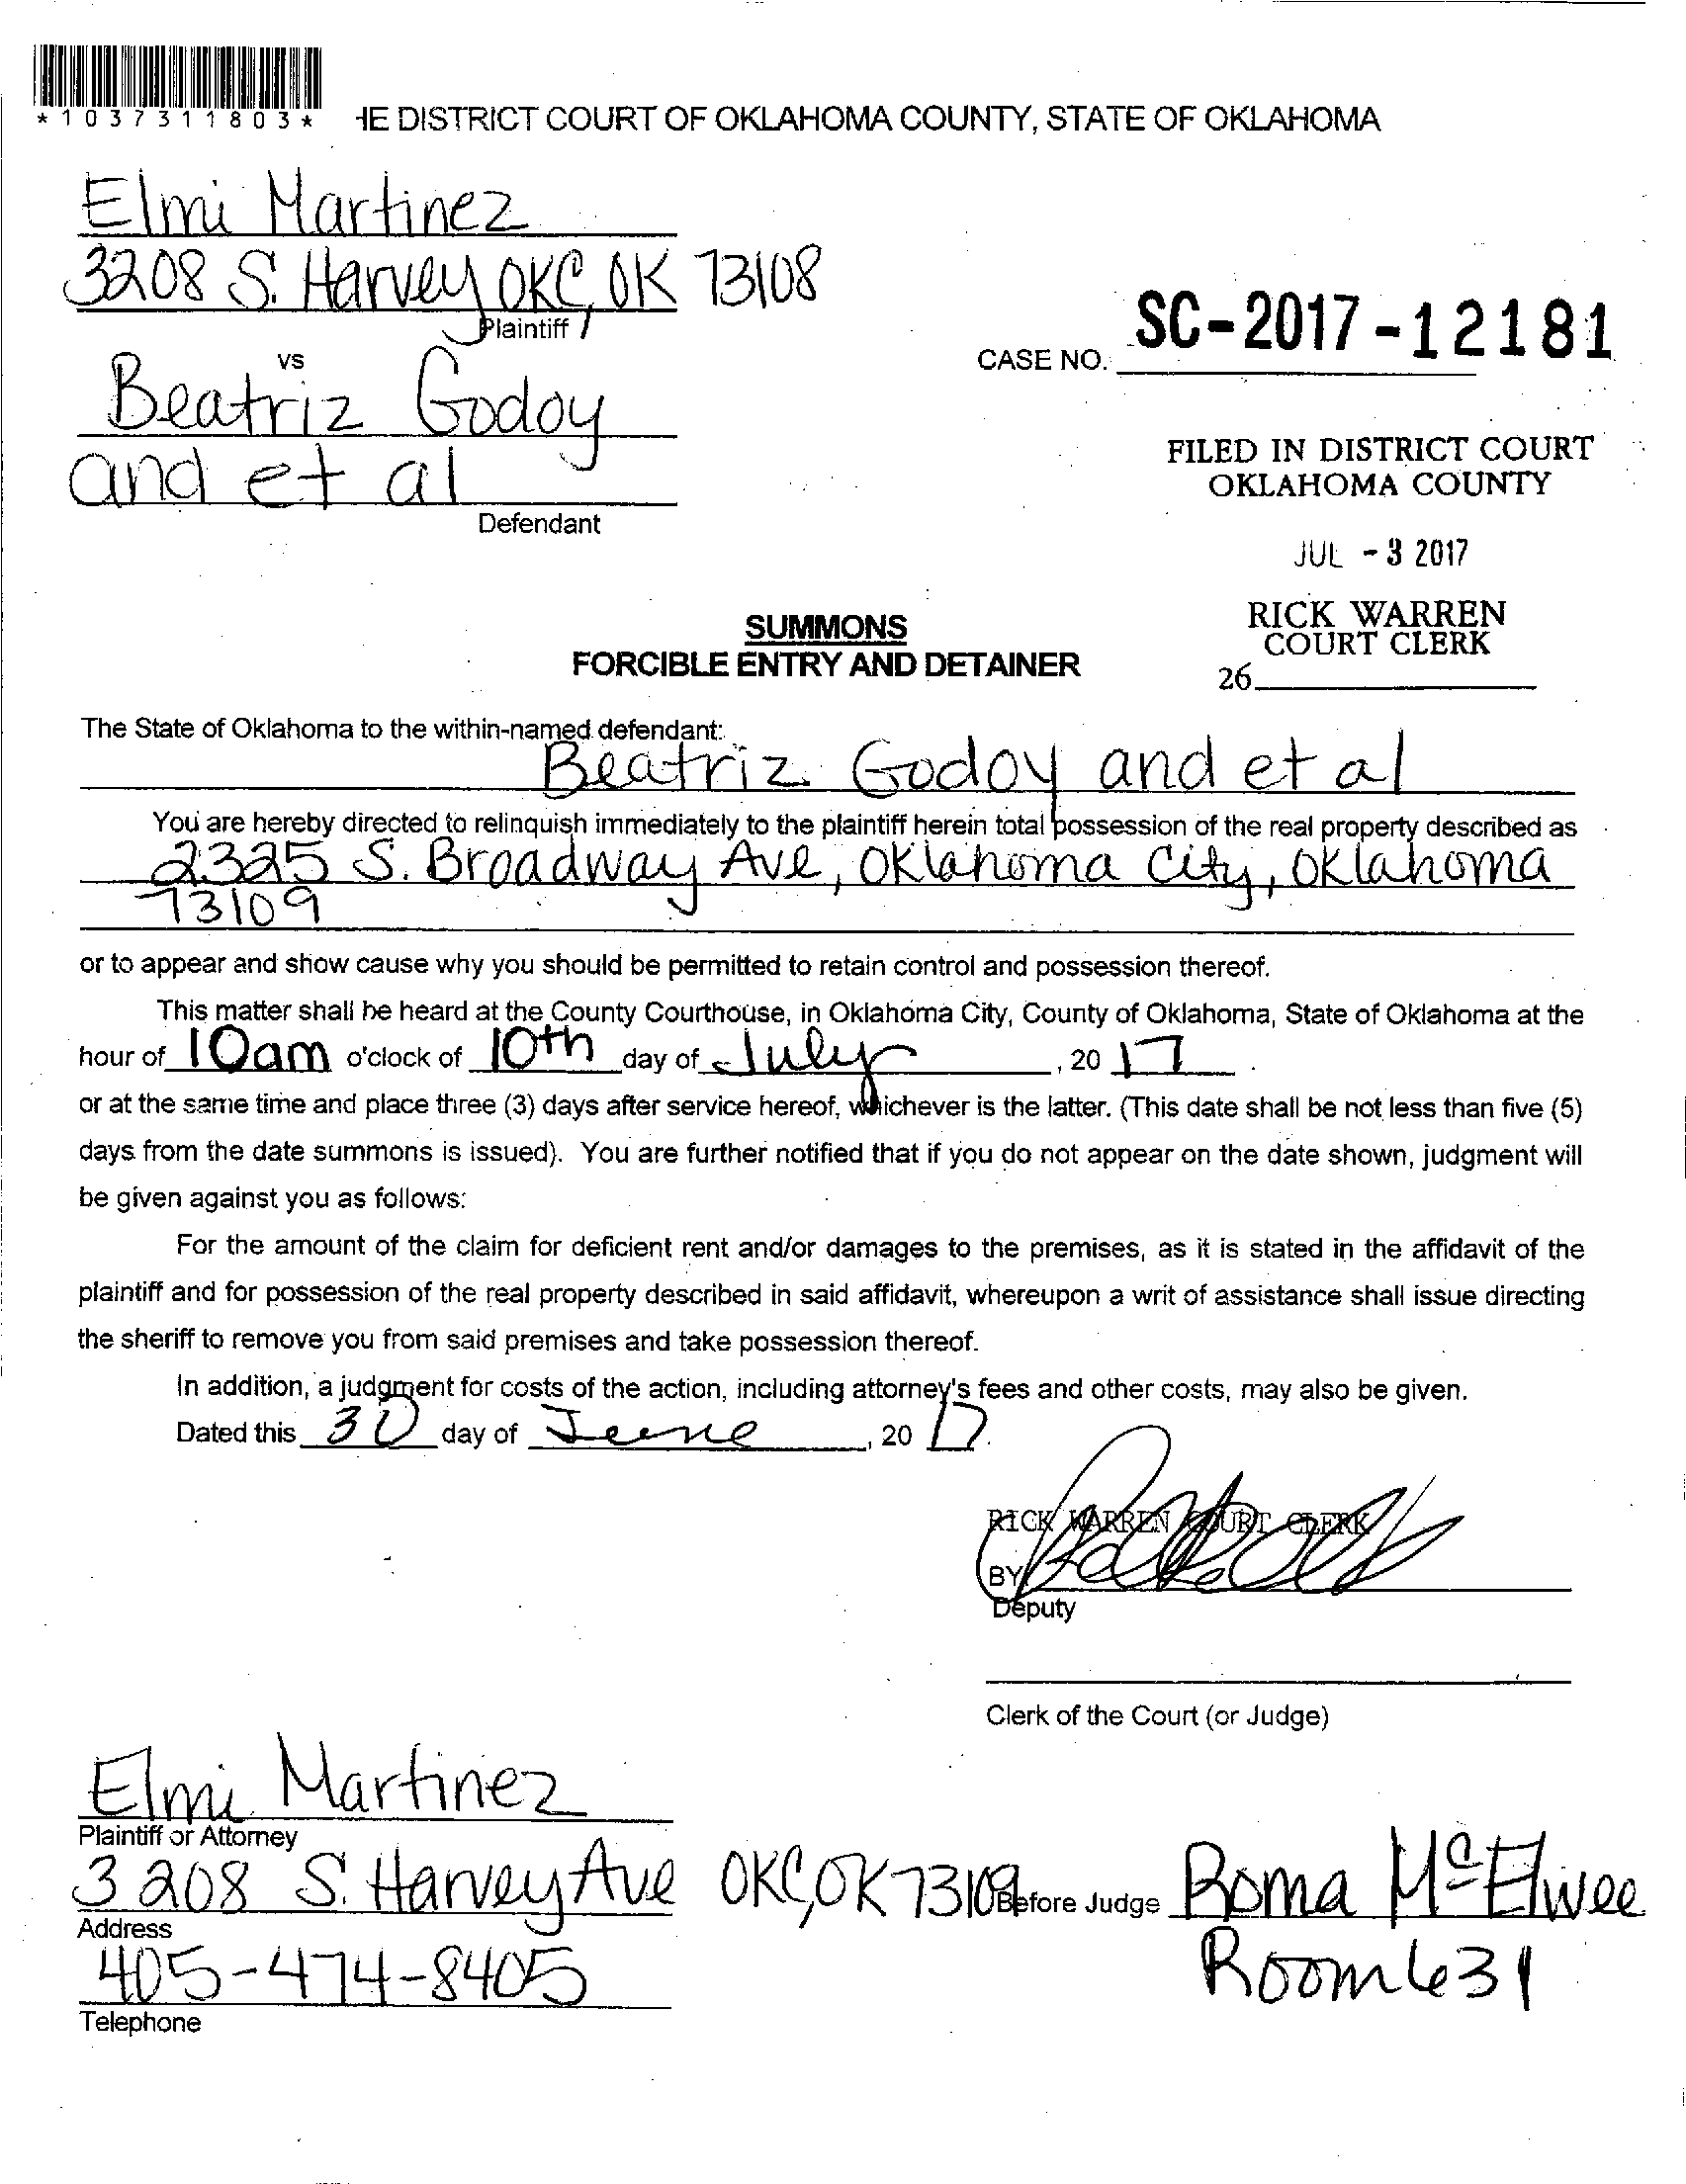 *1037311803*
HE DISTRICT COURT OF OKLAHOMA COUNTY, STATE OF OKLAHOMA
Elmi Martinez
3208 S. Harvey OKC, OK 73108
Plaintiff
vs
CASE NO. SC-2017-12181
Beatriz Godoy
and et al
Defendant
FILED IN DISTRICT COURT
OKLAHOMA COUNTY
JUL -3 2017
RICK WARREN
COURT CLERK
26
SUMMONS
FORCIBLE ENTRY AND DETAINER
The State of Oklahoma to the within-named defendant:
Beatriz Godoy and et al
You are hereby directed to relinquish immediately to the plaintiff herein total possession of the real property described as
2325 S. Broadway Ave, Oklahoma City, Oklahoma
73109
or to appear and show cause why you should be permitted to retain control and possession thereof.
This matter shall be heard at the County Courthouse, in Oklahoma City, County of Oklahoma, State of Oklahoma at the
hour of 10am o'clock of 10th day of July, 20 17.
or at the same time and place three (3) days after service hereof, whichever is the latter. (This date shall be not less than five (5)
days from the date summons is issued). You are further notified that if you do not appear on the date shown, judgment will
be given against you as follows:
For the amount of the claim for deficient rent and/or damages to the premises, as it is stated in the affidavit of the
plaintiff and for possession of the real property described in said affidavit, whereupon a writ of assistance shall issue directing
the sheriff to remove you from said premises and take possession thereof.
In addition, a judgment for costs of the action, including attorney's fees and other costs, may also be given.
Dated this 30 day of June, 20 17.
RICK WARREN COURT CLERK
BY
Deputy
Clerk of the Court (or Judge)
Elmi Martinez
Plaintiff or Attorney
3208 S. Harvey Ave OKC, OK 73109 Before Judge Roma McElwee
Address
Room 631
405-474-8405
Telephone